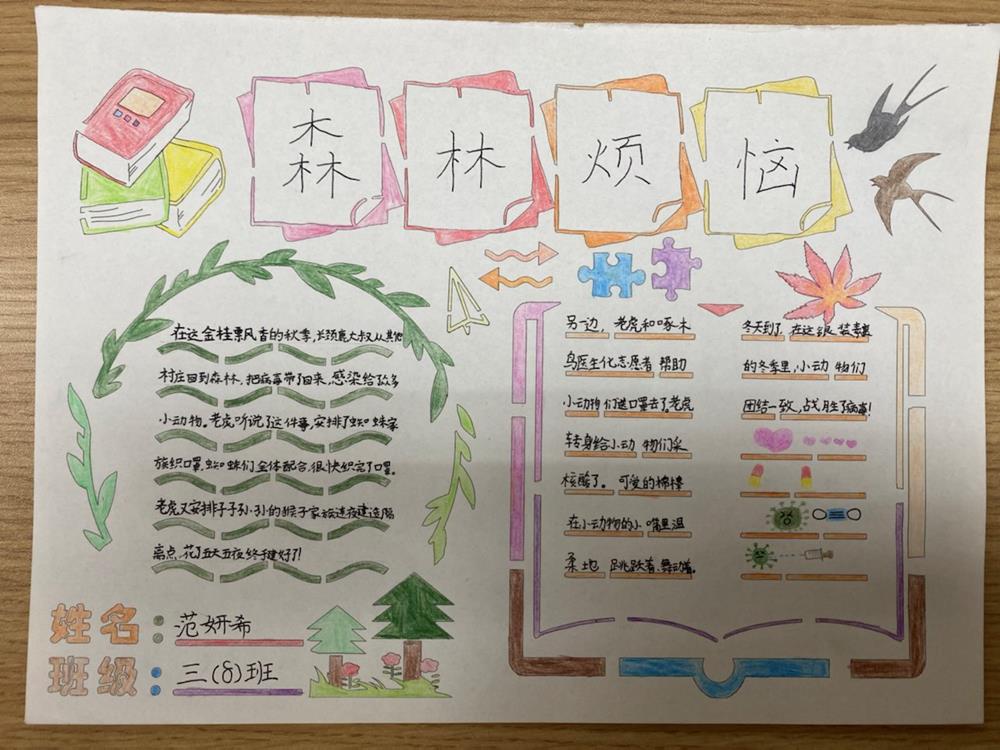 森林烦恼
在这金桂飘香的秋季,长颈鹿大叔从其他
村庄回到森林,把病毒带了回来,感染给了众多
小动物。老虎听说了这件事,安排了蜘蛛家
族织口罩,蜘蛛们全体配合,很快织完了口罩。
老虎又安排子子孙孙的猴子家族连夜建造隔
离点,花了五天五夜终于建好了!
另一边,老虎和啄木
鸟医生化志愿者帮助
小动物们送口罩去了。老虎
转身给小动物们采
核酸了。可爱的棉棒
在小动物的小嘴里温
柔地跳跃着,舞动着。
冬天到了,在这银装素裹
的冬季里,小动物们
团结一致,战胜了病毒!
姓名:范妍希
班级:三(8)班